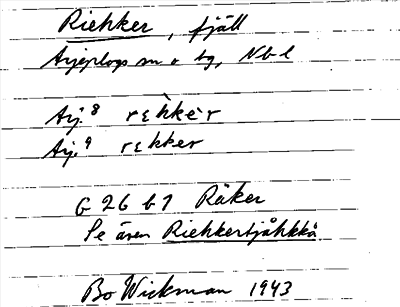 Riehker, fjäll
Arjeplogs sn o bg, Nb l
Arj. 8 rɛ̀kkèr
Arj. 9 rɛkker
G 26 b 7 Räker
Se även Riehkertjåhkkå
Bo Wickman 1943